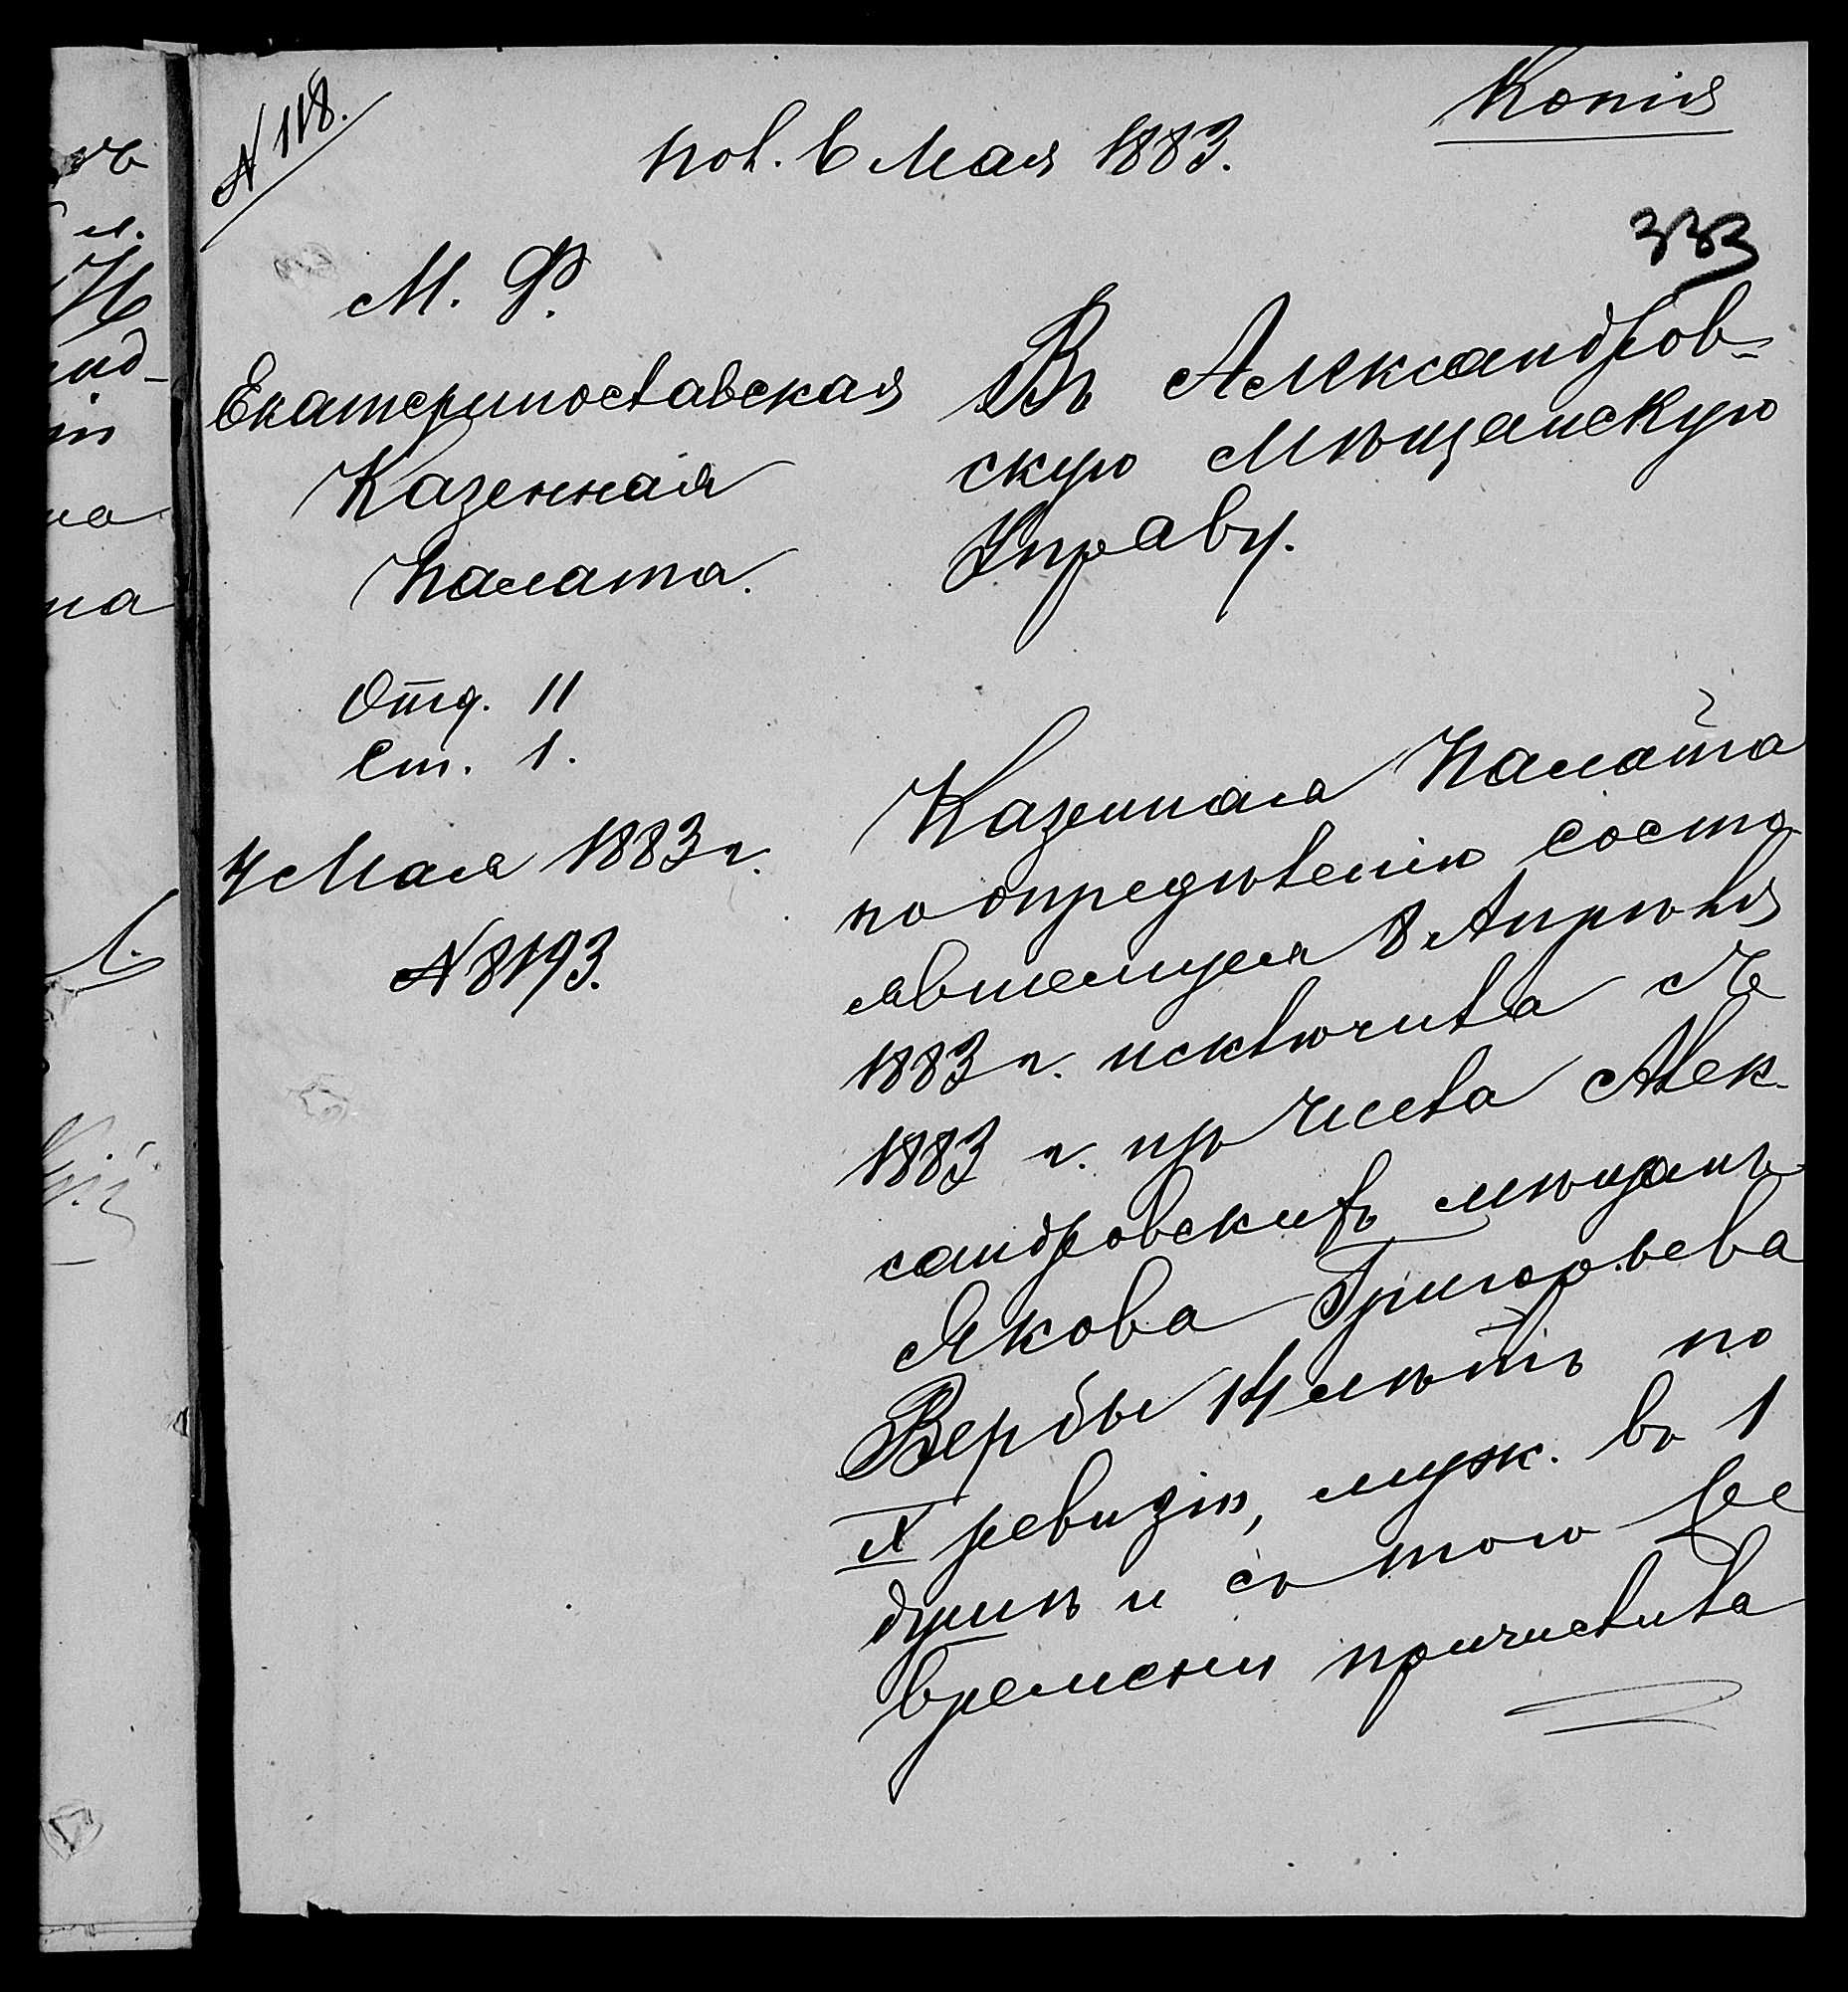 N 118.
Копія
пол. 6 Мая 1883.
333
М. Ф.
Екатеринославская
Казенная
Палата.
Отд. II
Ст. 1.
4 Мая 1883 г.
N 8193.
Въ Александров-
скую Мѣщанскую
Управу.
Казенная Палата
по опредѣленію состо
явшемуся 8 Апрѣля
1883 г. исключила съ
1883 г. изъ числа Алек-
сандровскихъ мѣщанъ
Якова Григорьева
Вербы 14 лѣтъ по
X ревизіи, муж. въ 1
душѣ и съ того же
времени причислила